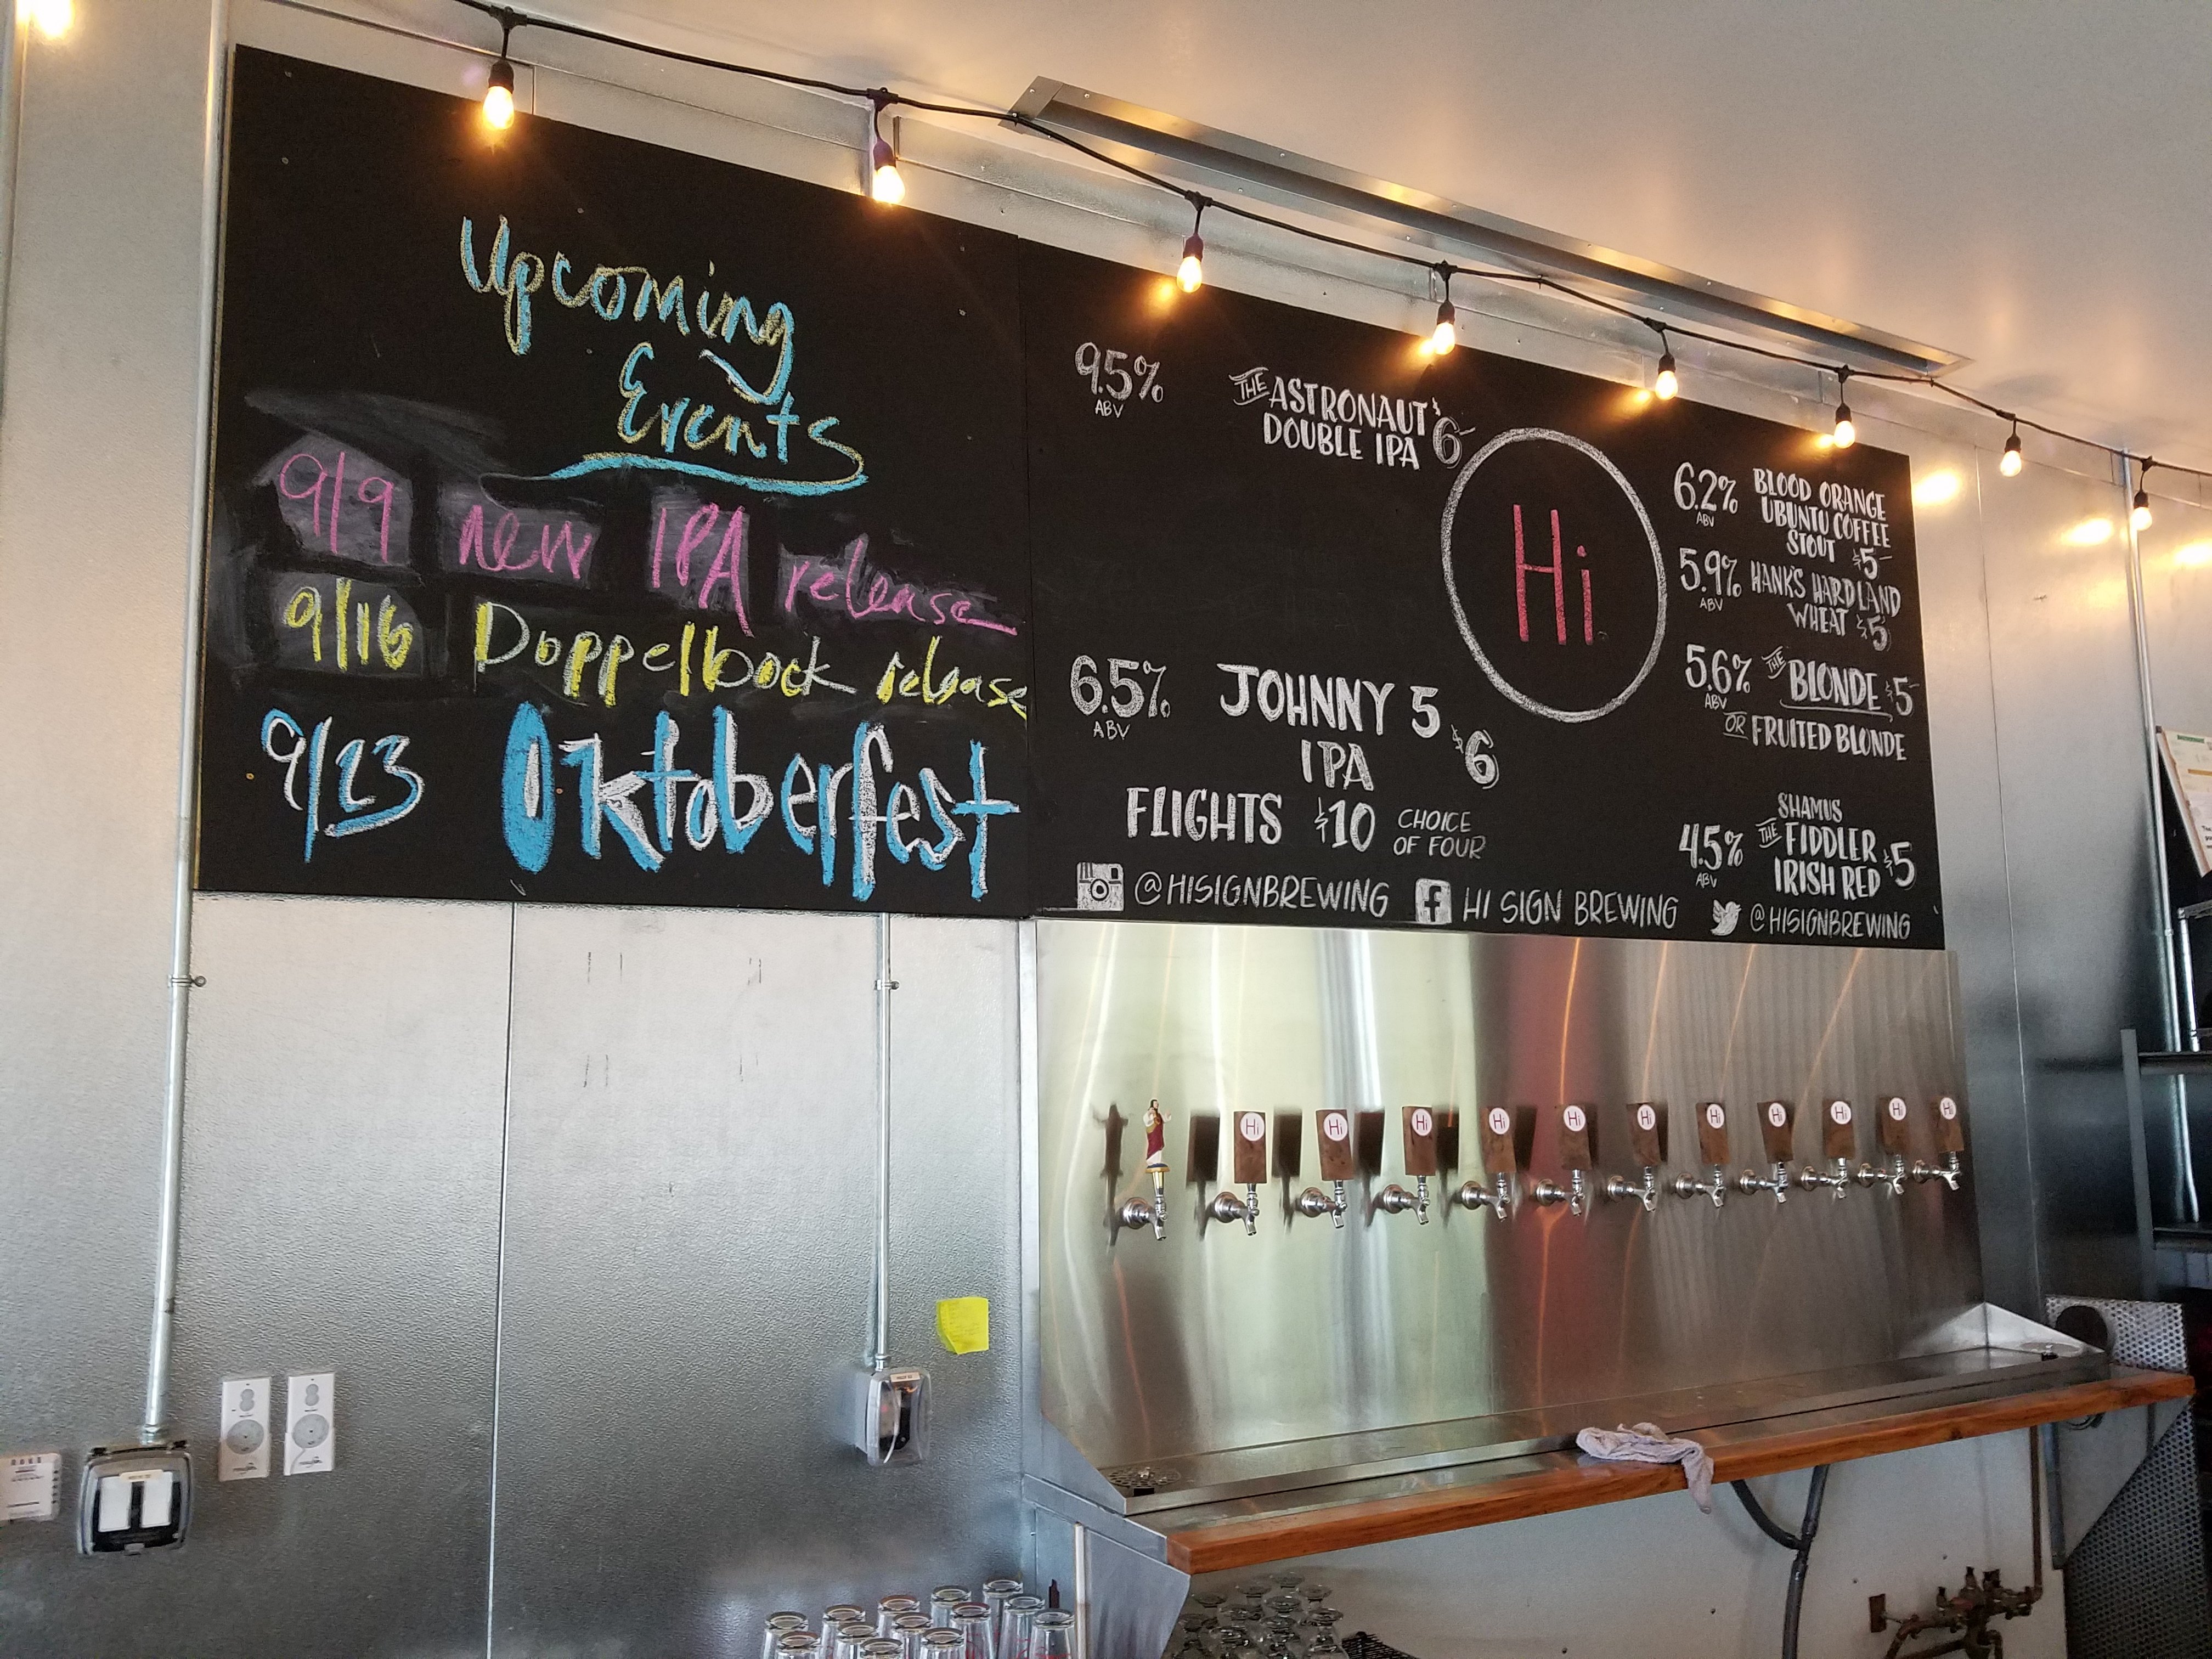 Upcoming
Events
9/9 new IPA release
9/16 Doppelbock release
9/23 Oktoberfest
9.5%
ABV
THE ASTRONAUT
DOUBLE IPA $6
6.5%
ABV
JOHNNY 5
IPA $6
FLIGHTS $10 CHOICE
OF FOUR
Hi
6.2%
ABV
BLOOD ORANGE
UBUNTU COFFEE
STOUT $5
5.9%
ABV
HANK'S HARD LAND
WHEAT $5
5.6%
ABV
THE BLONDE $5
OR FRUITED BLONDE
4.5%
ABV
SHAMUS
THE FIDDLER
IRISH RED $5
@HISIGNBREWING
HI SIGN BREWING
@HISIGNBREWING
Hi
Hi
Hi
Hi
Hi
Hi
Hi
Hi
Hi
Hi
Hi